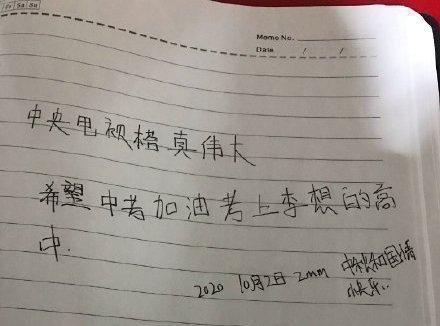 Fr Sa Su
Memo No.
Date / /
中央电视梧真伟大
希望中考加油考上李想的高
中.
2020 10月2日 2mm 中秋和国情
快乐..